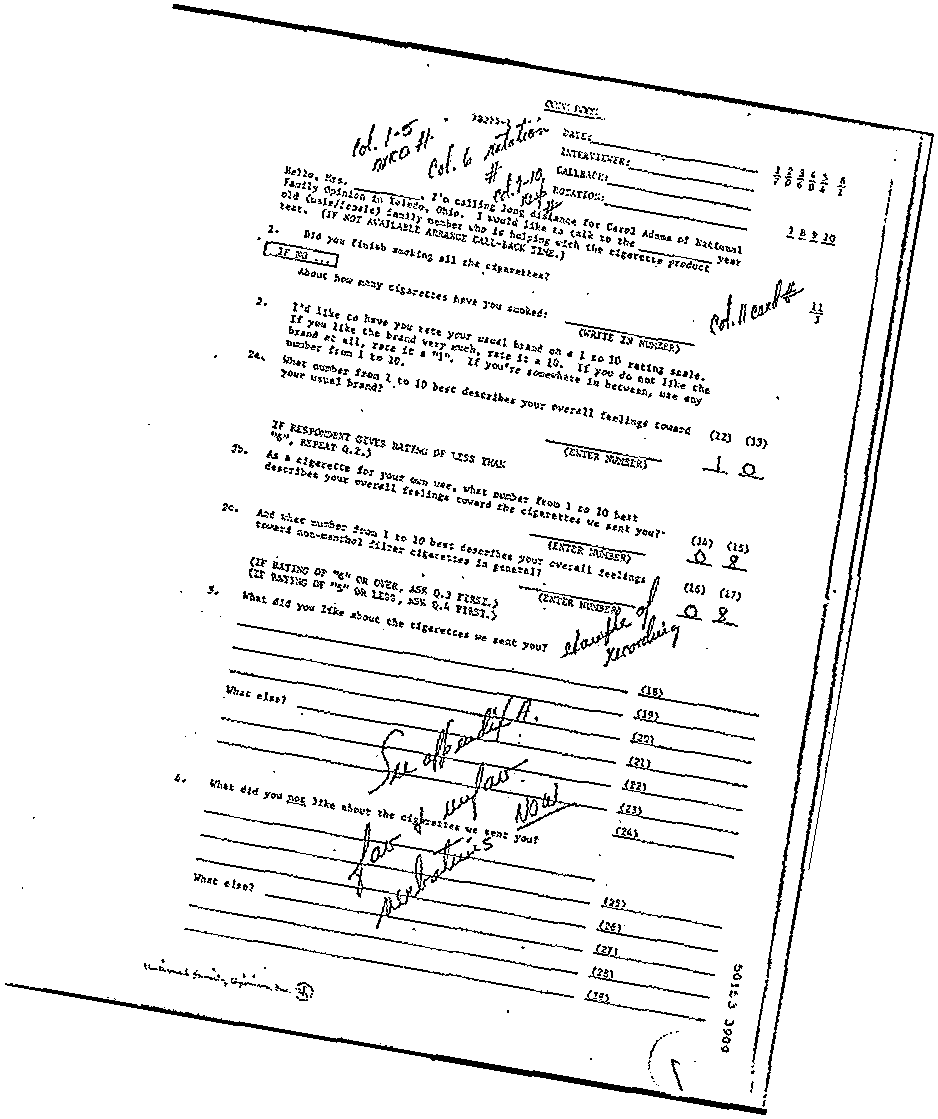 DATE:
Col. 1-5
NFO #.
Col. 6 rotation
#
INTERVIEWER:
CALLBACK:
Col. 7-10
ROTATION:
7 8 9 10
Hello, Mrs. I'm calling long distance for Carol Adams of National
Family Opinion in Toledo, Ohio. I would like to talk to the year
old (male/female) family member who is helping with the cigarette product
test. (IF NOT AVAILABLE ARRANGE CALL-BACK TIME.)
1. Did you finish smoking all the cigarettes?
IF NO ...
About how many cigarettes have you smoked:
(WRITE IN NUMBER)
Col. 11 card #
11
2. I'd like to have you rate your usual brand on a 1 to 10 rating scale.
If you like the brand very much, rate it a 10. If you do not like the
brand at all, rate it a "1". If you're somewhere in between, use any
number from 1 to 10.
2a. What number from 1 to 10 best describes your overall feelings toward
your usual brand?
(12) (13)
(ENTER NUMBER)
1 0
IF RESPONDENT GIVES RATING OF LESS THAN
"6", REPEAT Q.2.)
2b. As a cigarette for your own use, what number from 1 to 10 best
describes your overall feelings toward the cigarettes we sent you?
(ENTER NUMBER)
(14) (15)
0 8
2c. And what number from 1 to 10 best describes your overall feelings
toward non-menthol filter cigarettes in general?
(ENTER NUMBER)
(16) (17)
0 8
(IF RATING OF "6" OR OVER, ASK Q.3 FIRST.)
(IF RATING OF "5" OR LESS, ASK Q.4 FIRST.)
3. What did you like about the cigarettes we sent you?
example of
recording
(18)
(19)
What else?
(20)
(21)
(22)
(23)
(24)
See appendix A.
4. What did you not like about the cigarettes we sent you?
for
verbatims
(25)
(26)
What else?
(27)
(28)
National Family Opinion, Inc.